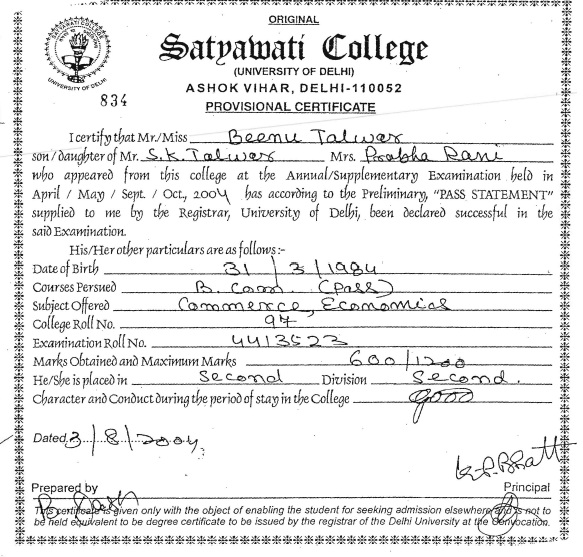 ORIGINAL
SATYAWATI COLLEGE
UNIVERSITY OF DELHI
Satyawati College
(UNIVERSITY OF DELHI)
ASHOK VIHAR, DELHI-110052
834
PROVISIONAL CERTIFICATE
I certify that Mr./Miss Beenu Talwar
son/daughter of Mr. S.K. Talwar Mrs. Prabha Rani
who appeared from this college at the Annual/Supplementary Examination held in
April / May / Sept. / Oct., 2004 has according to the Preliminary, "PASS STATEMENT"
supplied to me by the Registrar, University of Delhi, been declared successful in the
said Examination.
His/Her other particulars are as follows :-
Date of Birth 31 / 3 / 1984
Courses Persued B. Com. (Pass)
Subject Offered Commerce, Economics
College Roll No. 97
Examination Roll No. 4413523
Marks Obtained and Maximum Marks 600/1200
He/She is placed in Second Division Second.
Character and Conduct during the period of stay in the College good
Dated 3/8/2004
K.P. Bhatt
Prepared by Principal
This certificate is given only with the object of enabling the student for seeking admission elsewhere and is not to
be held equivalent to be degree certificate to be issued by the registrar of the Delhi University at the Convocation.